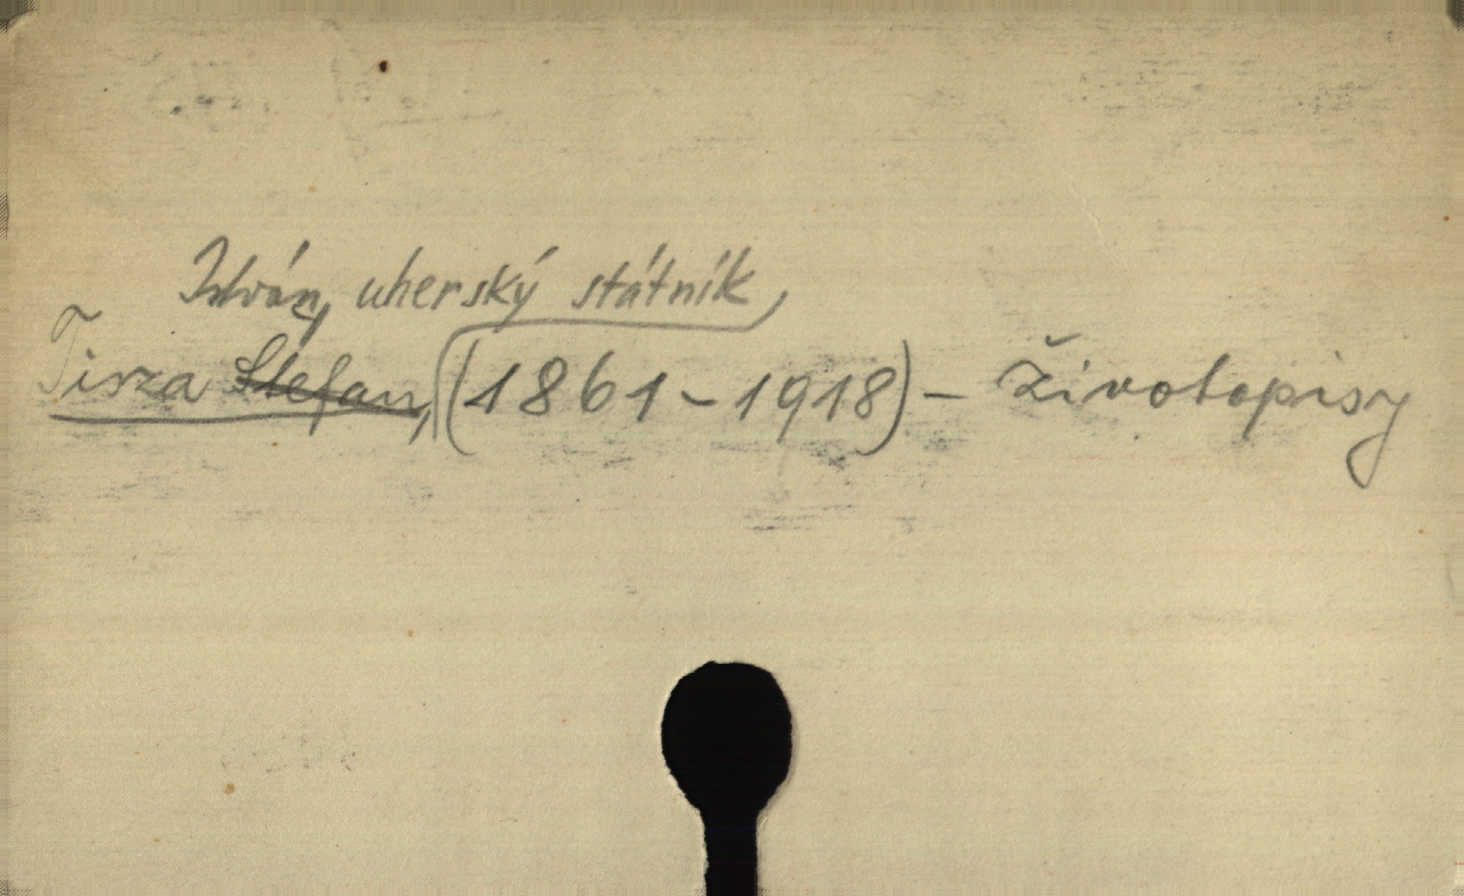 István, uherský státník,
Tisza Stefan, (1861-1918) - životopisy